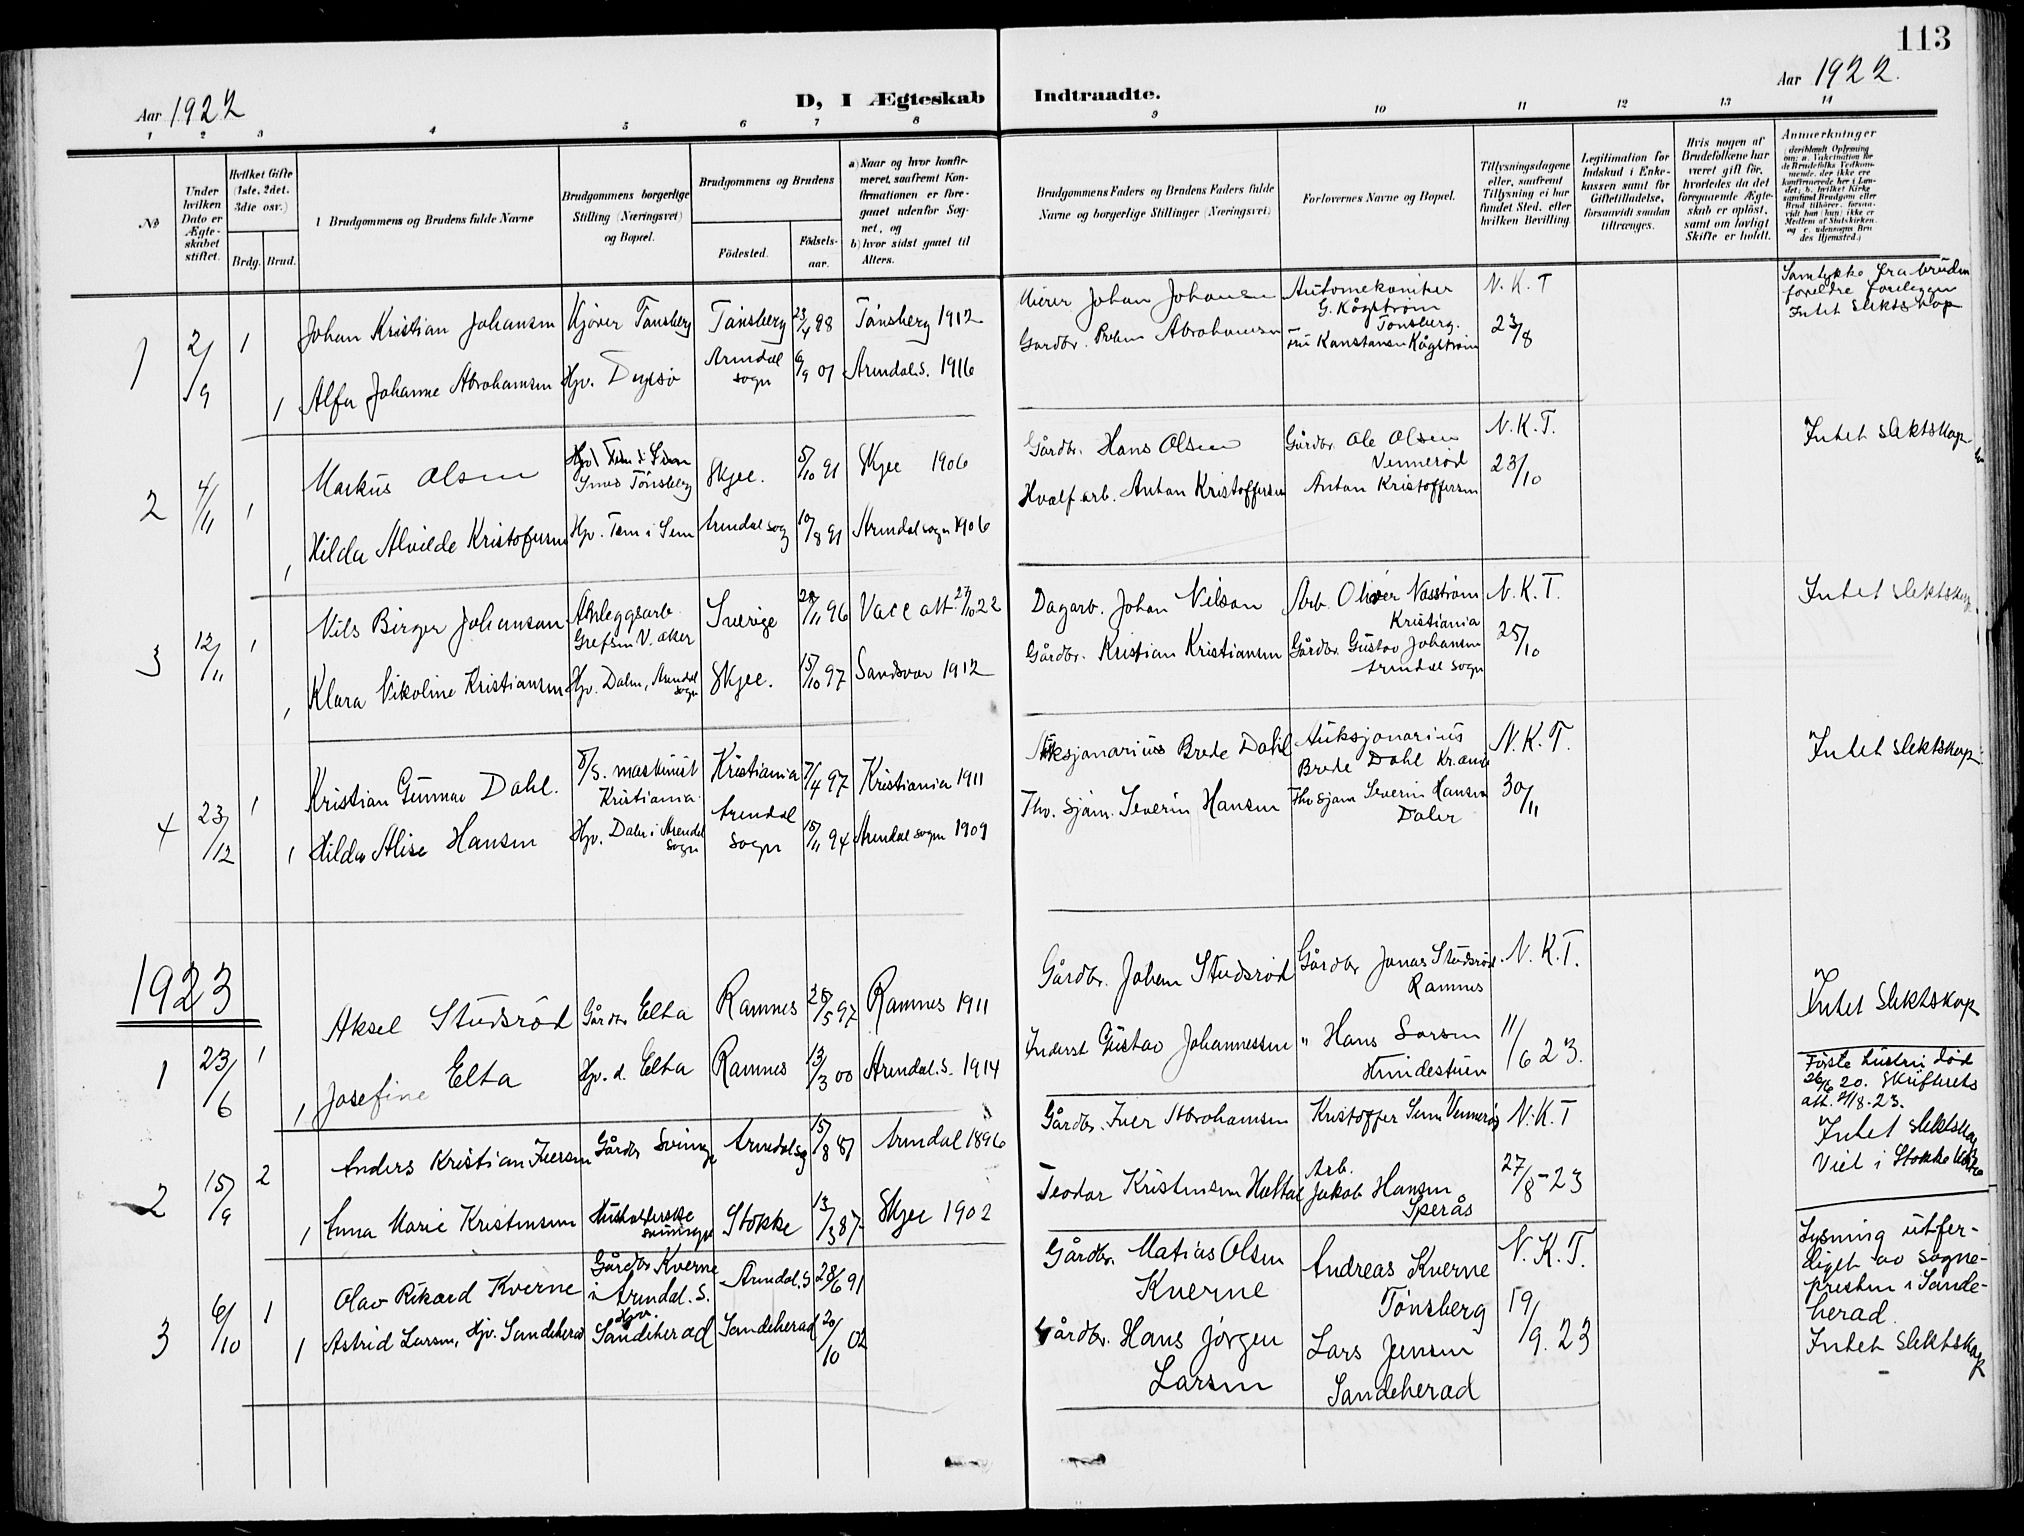 113
Aar 1922
D, I Ægteskab Indtraadte.
Aar 1922.
1 2 3 4 5 6 7 8 9 10 11 12 13 14
No
Under hvilken Dato er Ægteskabet stiftet.
Hvilket Gifte (1ste, 2det, 3die osv.)
Brdg. Brud.
Brudgommens og Brudens fulde Navne
Brudgommens borgerlige Stilling (Næringsvei) og Bopæl.
Brudgommens og Brudens
Födested. Födselsaar.
a) Naar og hvor konfirmeret, saafremt Konfirmationen er foregaaet udenfor Sognet, og
b) hvor sidst gaaet til Alters.
Brudgommens Faders og Brudens Faders fulde Navne og borgerlige Stillinger (Næringsvei)
Forlovernes Navne og Bopæl.
Tillysningsdagene eller, saafremt Tillysning ei har fundet Sted, efter hvilken Bevilling
Legitimation for Indskud i Enkekassen samt for Giftetilladelse, forsaavidt saadan tiltrænges.
Hvis nogen af Brudefolkene har været gift för, hvorledes da det foregaaende Ægteskab er oplöst, samt om lovligt Skifte er holdt.
Anmerkninger
1 2/9 1 Johan Kristian Johansen Tønsberg 23/4 98 Tønsberg 1912
Johan Johansen Automekaniker G. Kågstrøm Tønsberg. N. K. T
1 Alfa Johanne Abrahamsen Hjv. Arendal sogn 6/9 01 Arendal s. 1916
Gårdbr. Abrahamsen Kågstrøm 23/8
Samtykke fra bruden foreldre foreligger
Intet slektskap
2 4/11 1 Markus Olsen Tønsberg Skjee. 5/10 91 Skjee 1906
Gårdbr. Hans Olsen Gårdbr. Ole Olsen Vennerød N. K. T.
1 Hilda Alvilde Kristofersen Hjv. Tem i Sem Arendal sogn 10/8 91 Arendal sogn 1906
Hvalfarb. Anton Kristoffersen Anton Kristoffersen 23/10
Intet slektskap
3 12/11 1 Nils Birger Johanson Anleggsarb. Grefsen V. Aker Sverige /11 96 Vacc att. 27/10 22
Dagarb. Johan Nilson Arb. Oliver Kristiania N. K. T.
1 Klara Nikoline Kristiansen Hjv. Dalen, Arendal sogn Skjee. 15/10 97 Sandsvær 1912
Gårdbr. Kristian Kristiansen Gårdbr. Gustav Johansen Arendal sogn 25/10
Intet slektskap
4 23/12 1 Kristian Gunnar Dahl. maskinist Kristiania Kristiania 7/4 97 Kristiania 1911
Auksjonarius Brede Dahl Auksjonarius Brede Dahl Kr.ania N. K. T.
1 Hilda Alise Hansen Hjv. Dalen i Arendal sogn Arendal sogn 15/11 94 Arendal sogn 1909
Fhv. sjøm. Severin Hansen Fhv sjøm Severin Hansen Dalen 30/11
Intet slektskap
1923
1 23/6 1 Aksel Studsrød Gårdbr Elta Ramnes 26/5 97 Ramnes 1911
Gårdbr. Johan Studsrød Gårdbr Jonas Studsrød Ramnes N. K. T.
1 Josefine Elta Hjv. d. Elta Ramnes 13/3 00 Arendal. s. 1914
Inderst Gustav Johannessen " Hans Larsen 11/6 23.
Intet slektskap
2 15/9 2 Anders Kristian Iversen Gårdbr Arendal sg 15/8 81 Arendal 1896
Gårdbr. Iver Abrahamsen Kristoffer N. K. T
1 Anna Marie Kristensen Husholderske Stokke 13/3 87 Skjee 1902
Teodor Kristensen Arb. Jakob Hansen Sperås 27/8-23
Første hustru død 26/6 20. Skifterets att. 21/8-23.
Intet slektskap
Viet i Stokke kirke
3 6/10 1 Olav Rikard Kverne Gårdbr Kverne i Arendal. S. Arendal. S 28/6 91
Gårdbr. Matias Olsen Kverne Andreas Kverne Tønsberg N. K. T.
1 Astrid Larsen, Hjv. Sandeherad Hjv. Sandeherad Sandeherad 20/10 02
Gårdbr. Hans Jørgen Larsen Lars Jensen Sandeherad 19/9. 23
Lysning utferdiget av sognepresten i Sandeherad.
Intet slektskap